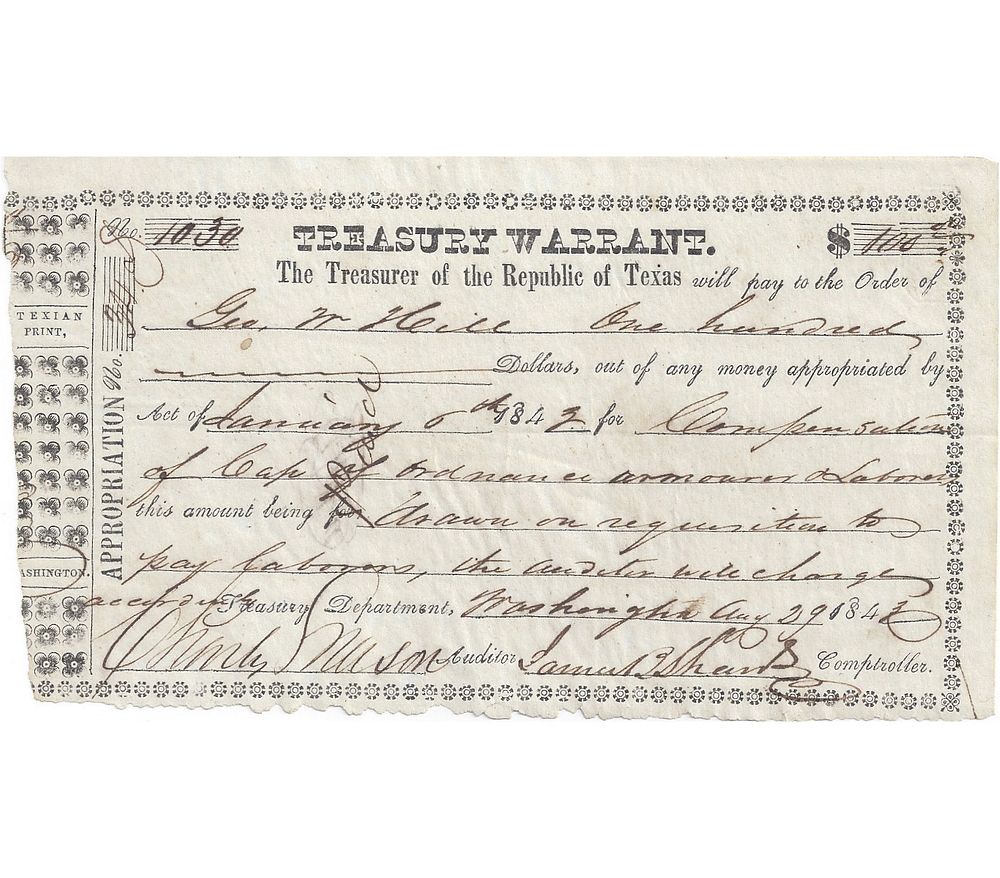 No. 1030 TREASURY WARRANT. $ 100
The Treasurer of the Republic of Texas will pay to the Order of
Geo. W Hill One hundred
Dollars, out of any money appropriated by
Act of January 6th 1842 for Compensation
of Capt of ordnance armourer & Laborers
this amount being for drawn on requisition to
pay laborers, the auditor will charge
accordingly Treasury Department, Washington Aug 29 1843
Charles Mason Auditor James B Shaw Comptroller.
APPROPRIATION No.
TEXIAN
PRINT,
ASHINGTON.